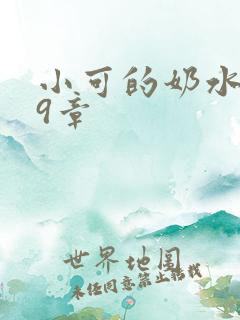 小可的奶水
9章
世界地图
未经同意禁止转载